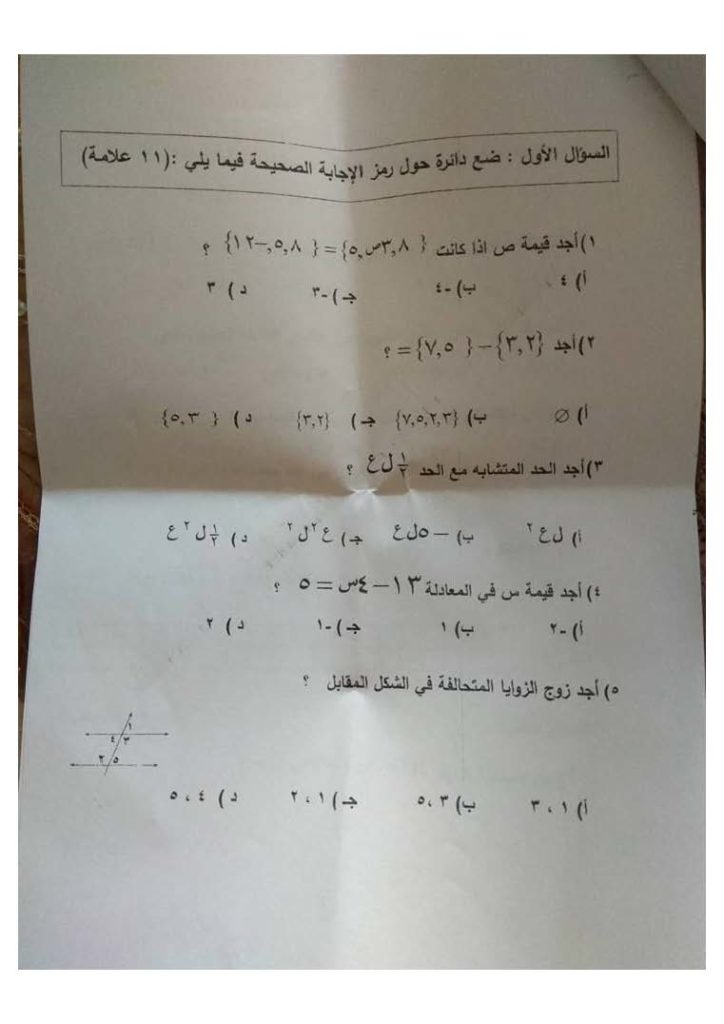 السؤال الأول : ضع دائرة حول رمز الإجابة الصحيحة فيما يلي :(١١ علامة)
١)أجد قيمة ص اذا كانت { ٣,٨ص,٥} = { ٥,٨,-١٢} ؟
أ) ٤ ب) -٤ جـ) -٣ د) ٣
٢)أجد {٣,٢} – { ٧,٥} = ؟
أ) ∅ ب) {٧,٥,٢,٣} جـ) {٣,٢} د) { ٥,٣}
٣)أجد الحد المتشابه مع الحد ١/٢ ل ع ؟
أ) ل ع ٢ ب) – ٥ل ع جـ) ع ٢ ل ٢ د) ١/٢ ل ٢ ع
٤) أجد قيمة س في المعادلة ١٣ – ٤س = ٥ ؟
أ) -٢ ب) ١ جـ) -١ د) ٢
٥) أجد زوج الزوايا المتحالفة في الشكل المقابل ؟
١
٤ ٣
٢ ٥
أ) ١ ، ٣ ب) ٣ ،٥ جـ) ١ ، ٢ د) ٤ ، ٥